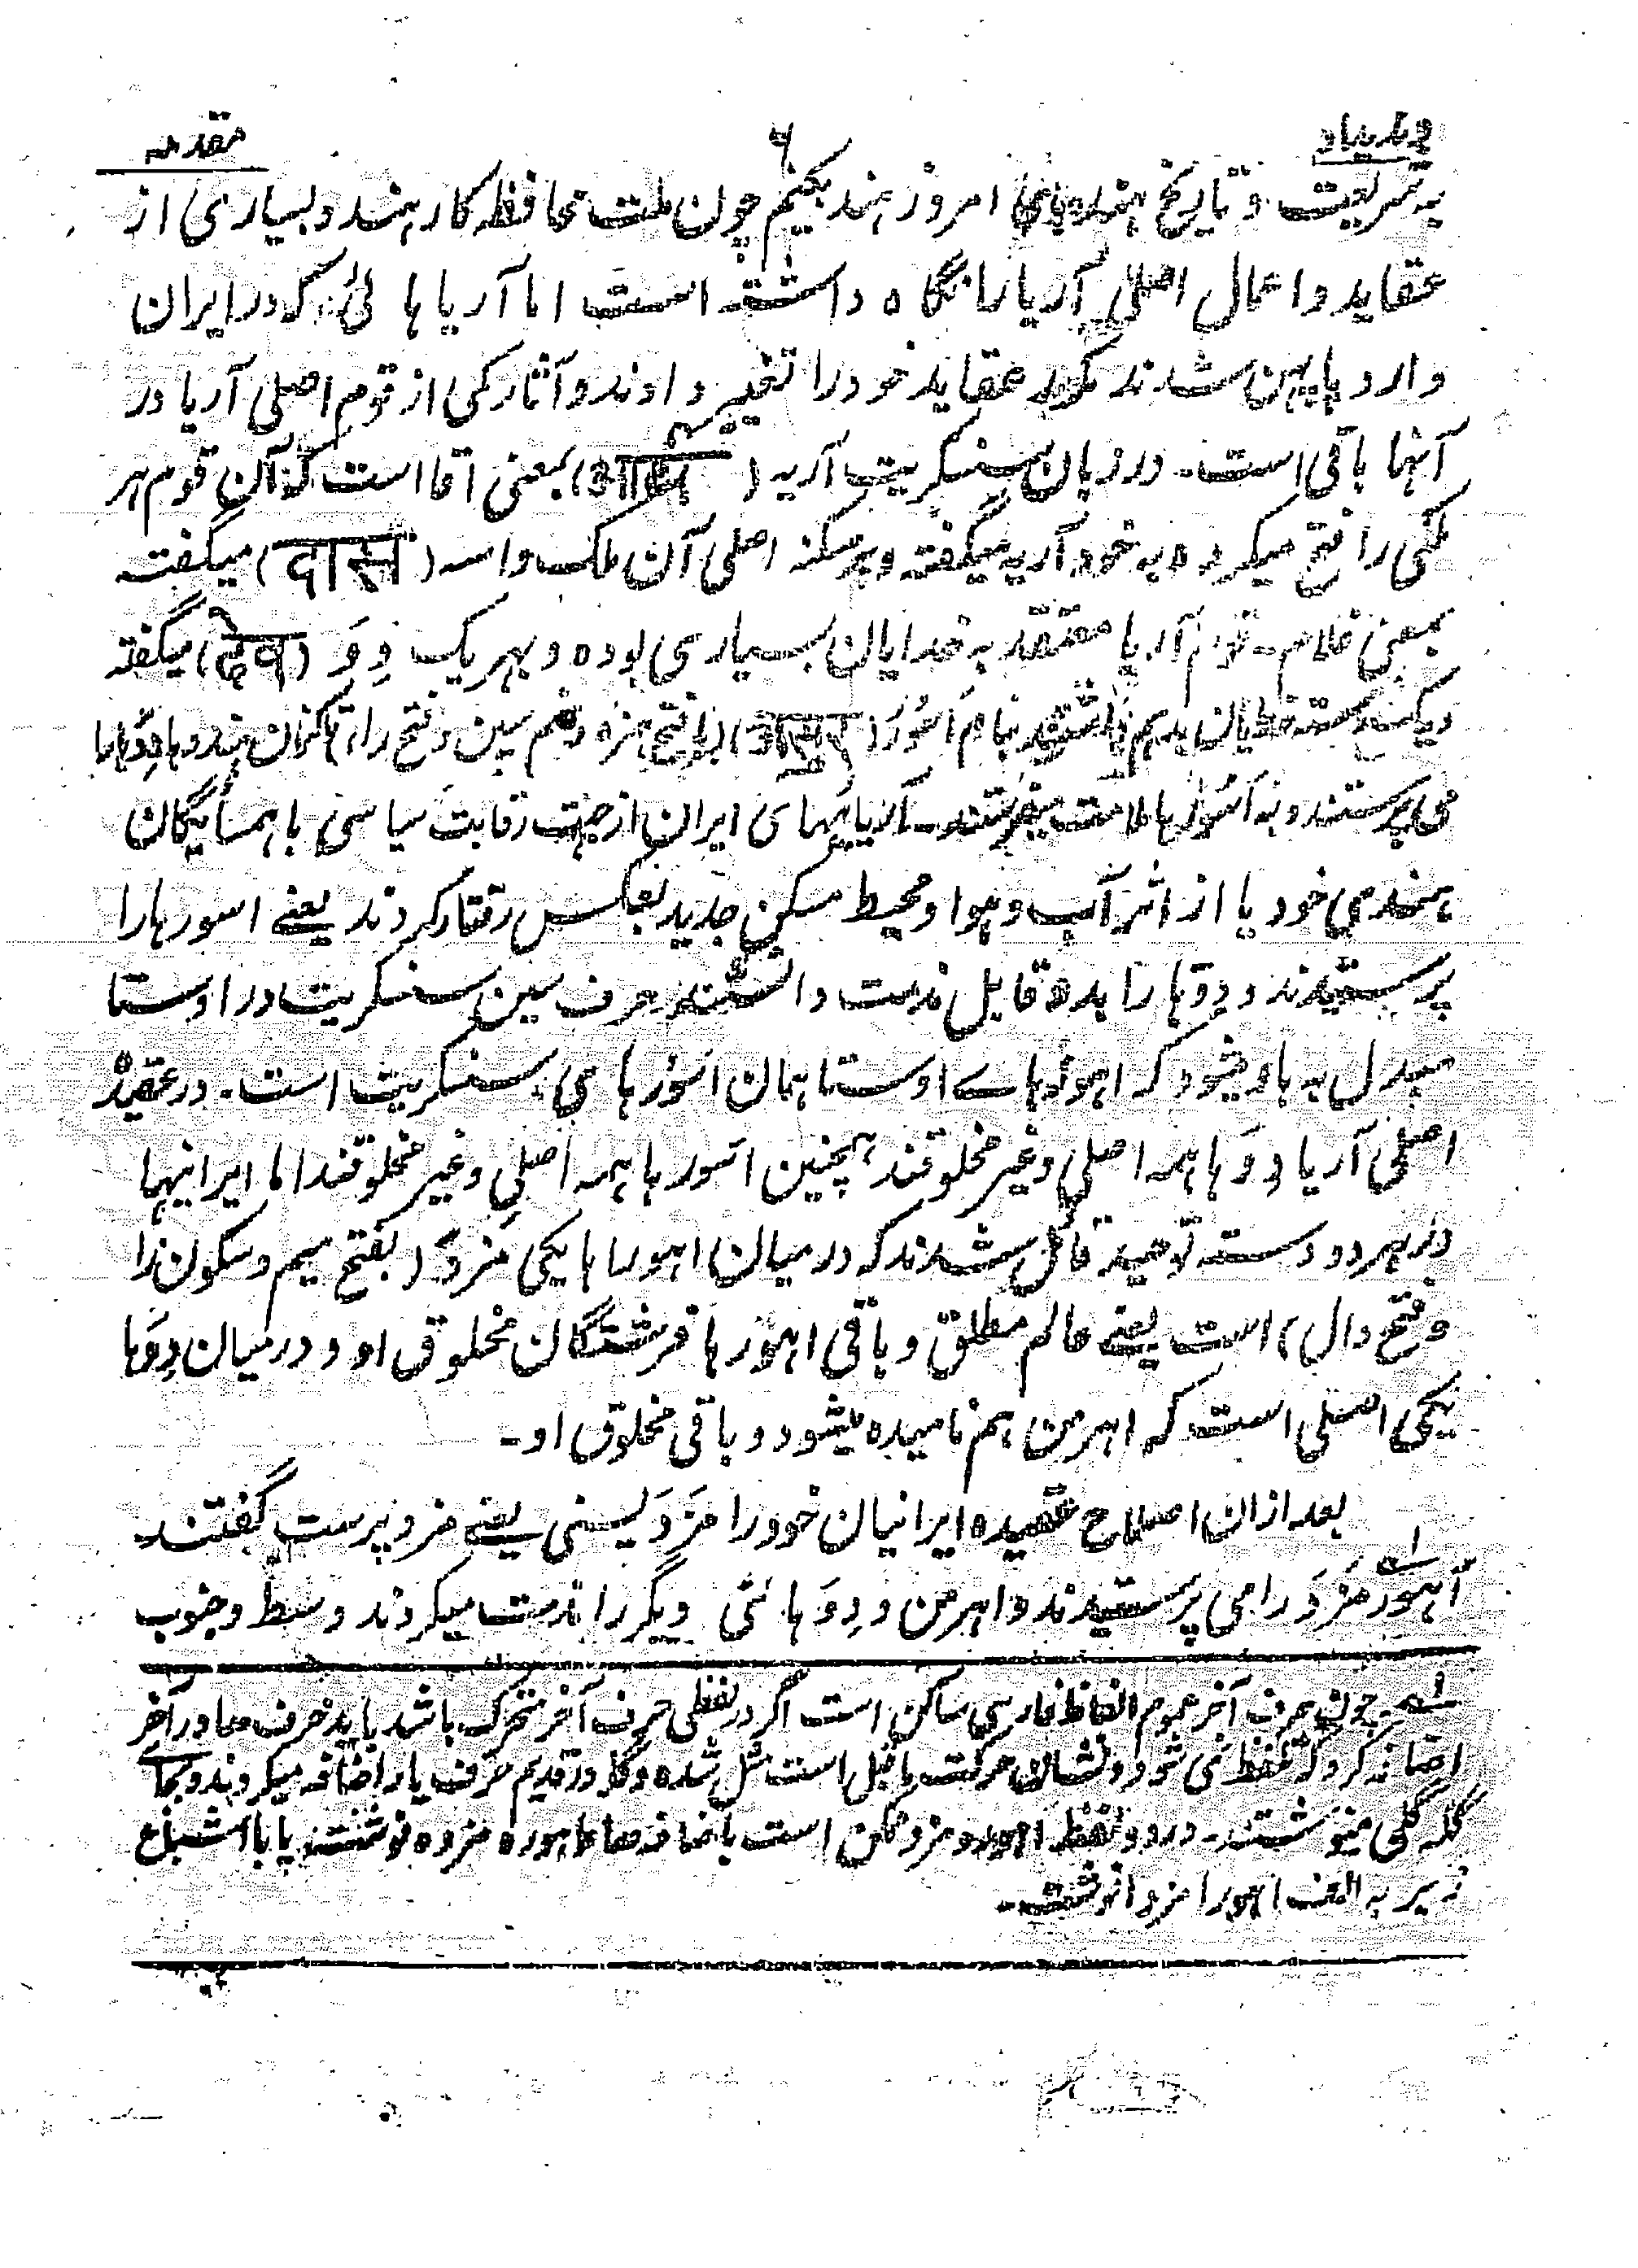 وندیداد ۶ مقدمه
به شریعت و تاریخ هندوهای امروز هند بکنیم چون ملت محافظه کار هند و بسیاری از
عقاید و اعمال اصلی آریا را نگاه داشته است اما آریا هائی که در ایران
وارد پایهن شدند عقاید خود را تغییر دادند و آثار کمی از قوم اصلی آریا در
آنها باقی است۔ در زبان سنسکریت آریه (आर्य) بمعنی آقا است که آن قوم هر
ملکی را فتح میکرده به خود آریه میگفته و بر سکنه اصلی آن ملک داسه (दास) میگفت
بمعنی غلام۔ قوم آریا معتقد به خدایان بسیاری بوده و بهر یک دِوَ (देव) میگفته
ویک دسته خدایان بدهم داشتند بنام اَسُوَر (असुर) (با فتح همزه و ضم سین و فتح را) تاکنون هندوها دِوَها را
می پرستند و به اَسُوَرها ملامت میفرستند۔ آریایهای ایران از جهت رقابت سیاسی با همسایگان
هندی خود یا از اثر آب و هوا و محیط مسکن جدید بعکس رفتار کردند یعنے اسورها را
پرستیدند و دِوَها را بده قابل مذمت دانستند حرف سین سنسکریت در اوستا
مبدل به ها میشود که اهورهاے اوستا همان اسورهای سنسکریت است۔ در عقیدۀ
اصلی آریا دِوَها همه اصلی و غیر مخلوقند همچنین اسورها همه اصلی و غیر مخلوقند اما ایرانیها
در هر دو دسته توحید قائل شدند که در میان اهورا ها یکی مَزدَ (بفتح میم و سکون زا
و فتح دال) است یعنے عالم مطلق و باقی اهورها فرشتگان مخلوق او و در میان دِوَها
یکی اصلی است که اهرمن هم نامیده میشود و باقی مخلوق او۔
بعد از ان اصلاح عقیده ایرانیان خود را مَزدَیسنی یعنے مزد پرست گفتند
آهورَ مَزدَ را می پرستیدند و اهرمن و دِوَ هائی دیگر را مذمت میکردند وسط و جنوب
لے چون حرف آخر عموم الفاظ فارسی ساکن است اگر در لفظی حرف آخر متحرک باشد باید حرف ها در آخر
اضافه کرد که تلفظ نمی شود و نشان حرکت ماقبل است مثل شده و در قدیم حرف یا را اضافه میکردند و بجاے
که کی مینوشتند۔ در دو لفظ اهور و مزد ممکن است با اضافه ها اهوره مزده نوشت یا با اشباع
زبر به الف اهورا مزدا نوشت۔